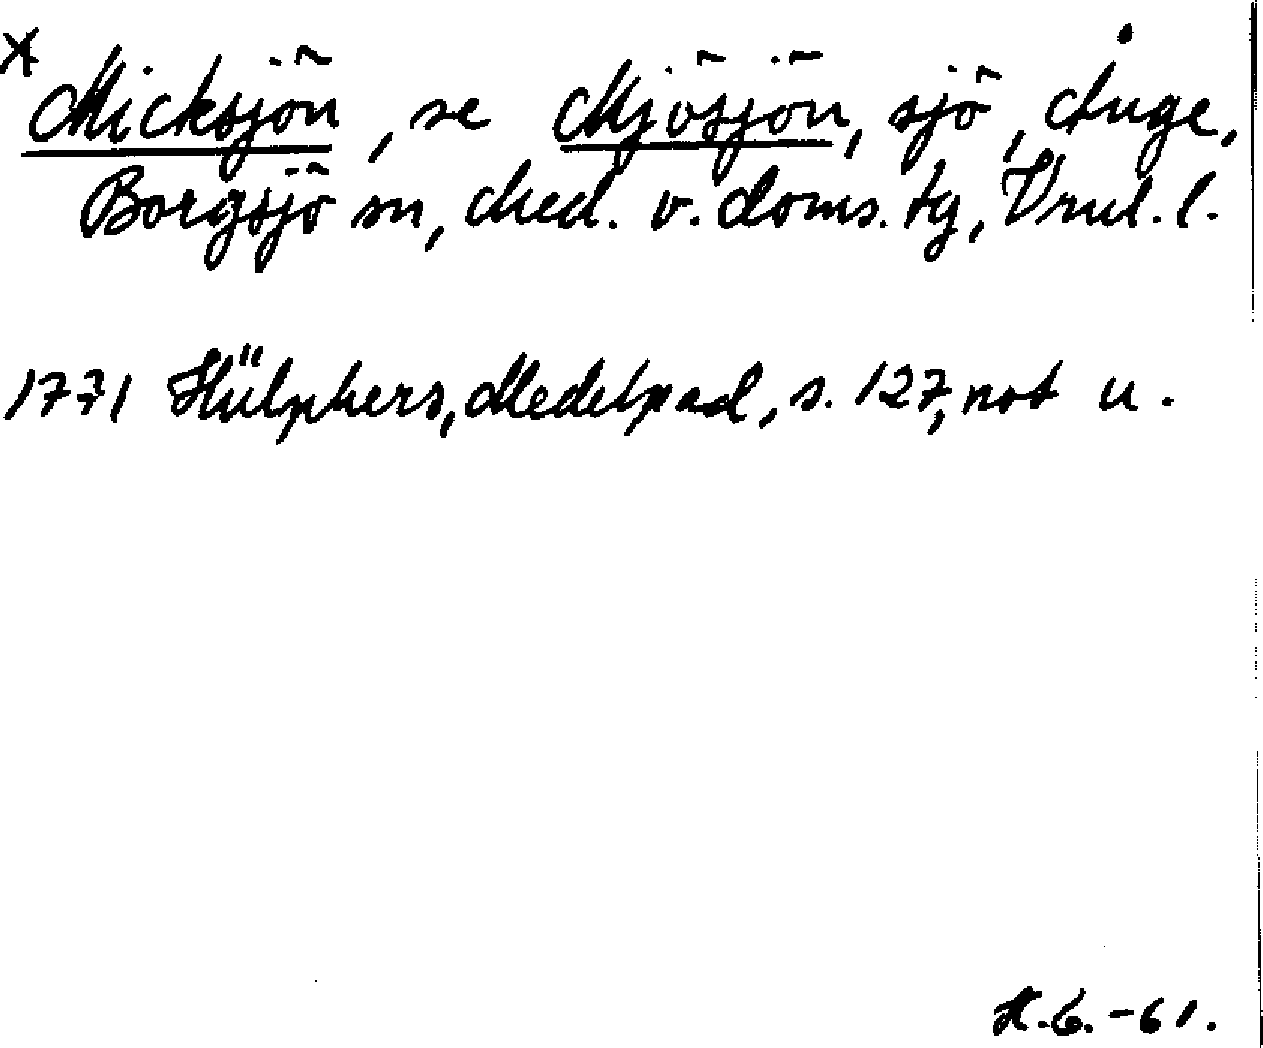 x Micksjön, se Mjösjön, sjö, Ånge,
Borgsjö sn, Med. v. doms. tg, Vnul. l.
1771 Hülphers, Medelpad, s. 127, not u.
H.G.-61.